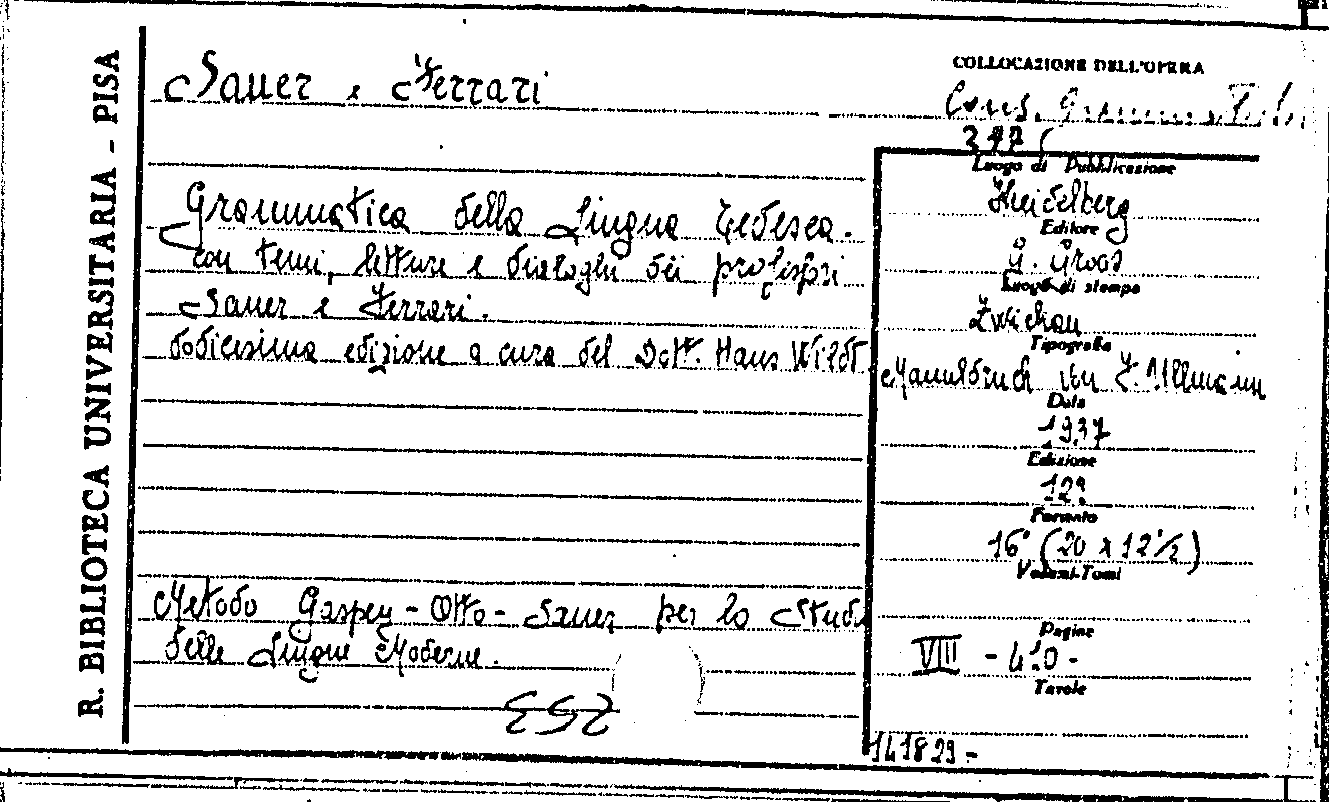 R. BIBLIOTECA UNIVERSITARIA - PISA
Sauer e Ferrari
COLLOCAZIONE DELL'OPERA
Cons.
Grammatica della Lingua Tedesca.
con temi, letture e dialoghi dei professori
Sauer e Ferrari.
dodicesima edizione a cura del Dott. Hans Wildt
Metodo Gaspey - Otto - Sauer per lo Studio
delle Lingue Moderne.
253
Luogo di Pubblicazione
Heidelberg
Editore
G. Groos
Luogo di stampa
Zwickau
Tipografia
Manuldruck von F. Ullmann
Data
1937
Edizione
12ª
Formato
16° (20 x 12½)
Volumi-Tomi
Pagine
VIII - 410 -
Tavole
141829 -